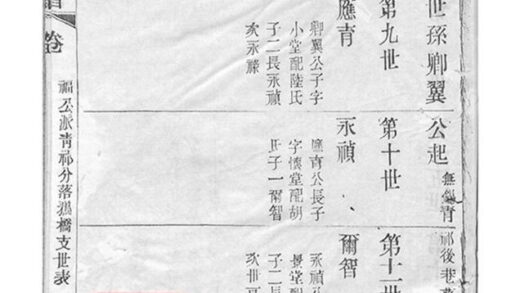 世孫卿翼公起無錫青祁後巷
第九世
第十世
第十一世
應青
卿翼公子字
小堂配陸氏
子二長永禎
次永
永禎
應青公長子
字懷堂配胡
氏子一爾智
爾智
永禎公
景堂配
子二長
次世
卷
福公派青祁分落鴻橋支世表